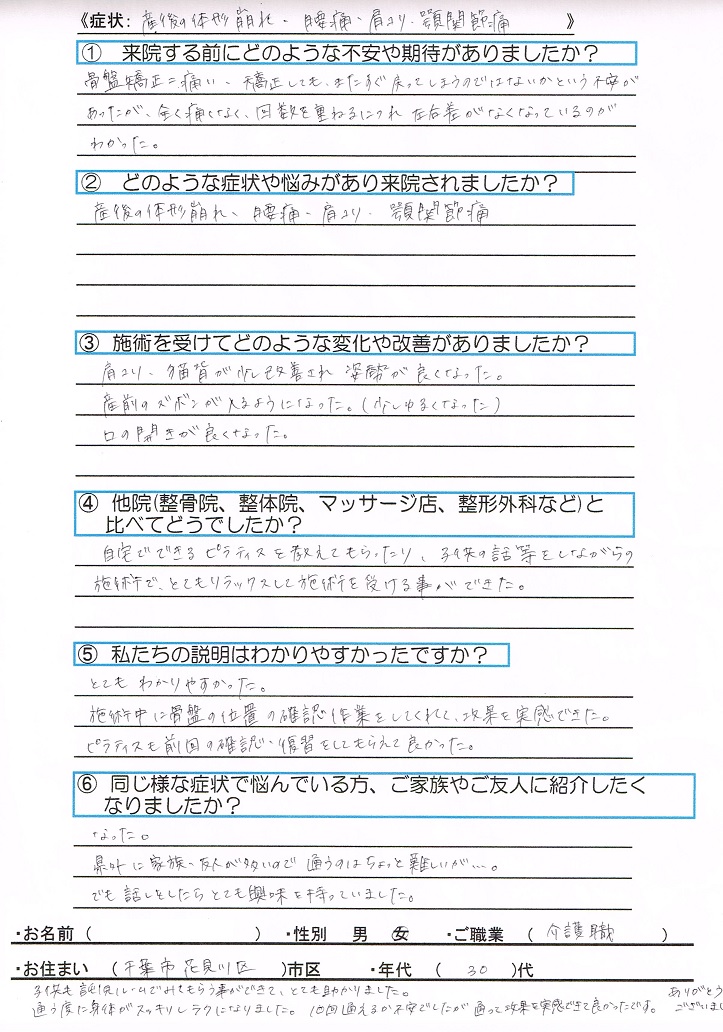 《症状: 産後の体形崩れ、腰痛、肩コリ、顎関節痛 》
① 来院する前にどのような不安や期待がありましたか？
骨盤矯正＝痛い、矯正しても、またすぐ戻ってしまうのではないかという不安が
あったが、全く痛くなく、回数を重ねるにつれ左右差がなくなっているのが
わかった。
② どのような症状や悩みがあり来院されましたか？
産後の体形崩れ、腰痛、肩コリ、顎関節痛
③ 施術を受けてどのような変化や改善がありましたか？
肩コリ、猫背が少し改善され 姿勢が良くなった。
産前のズボンが入るようになった。(少しゆるくなった)
口の開きが良くなった。
④ 他院(整骨院、整体院、マッサージ店、整形外科など)と
比べてどうでしたか？
自宅でできるピラティスを教えてもらったり、子供の話等をしながらの
施術で、とてもリラックスして施術を受ける事ができた。
⑤ 私たちの説明はわかりやすかったですか？
とても わかりやすかった。
施術中に骨盤の位置の確認作業をしてくれて、効果を実感できた。
ピラティスも前回の確認、復習をしてもらえて良かった。
⑥ 同じ様な症状で悩んでいる方、ご家族やご友人に紹介したく
なりましたか？
なった。
県外に家族、友人が多いので 通うのはちょっと難しいが…。
でも 話しをしたらとても興味を持っていました。
・お名前（ ）・性別 男 女 ・ご職業（ 介護職 ）
・お住まい （千葉市 花見川区 ）市区 ・年代（ 30 ）代
子供も託児ルームでみてもらう事ができて、とても助かりました。
通う度に身体がスッキリしラクになりました。 10回通えるか不安でしたが通って効果を実感できて良かったです。
ありがとう
ございまし